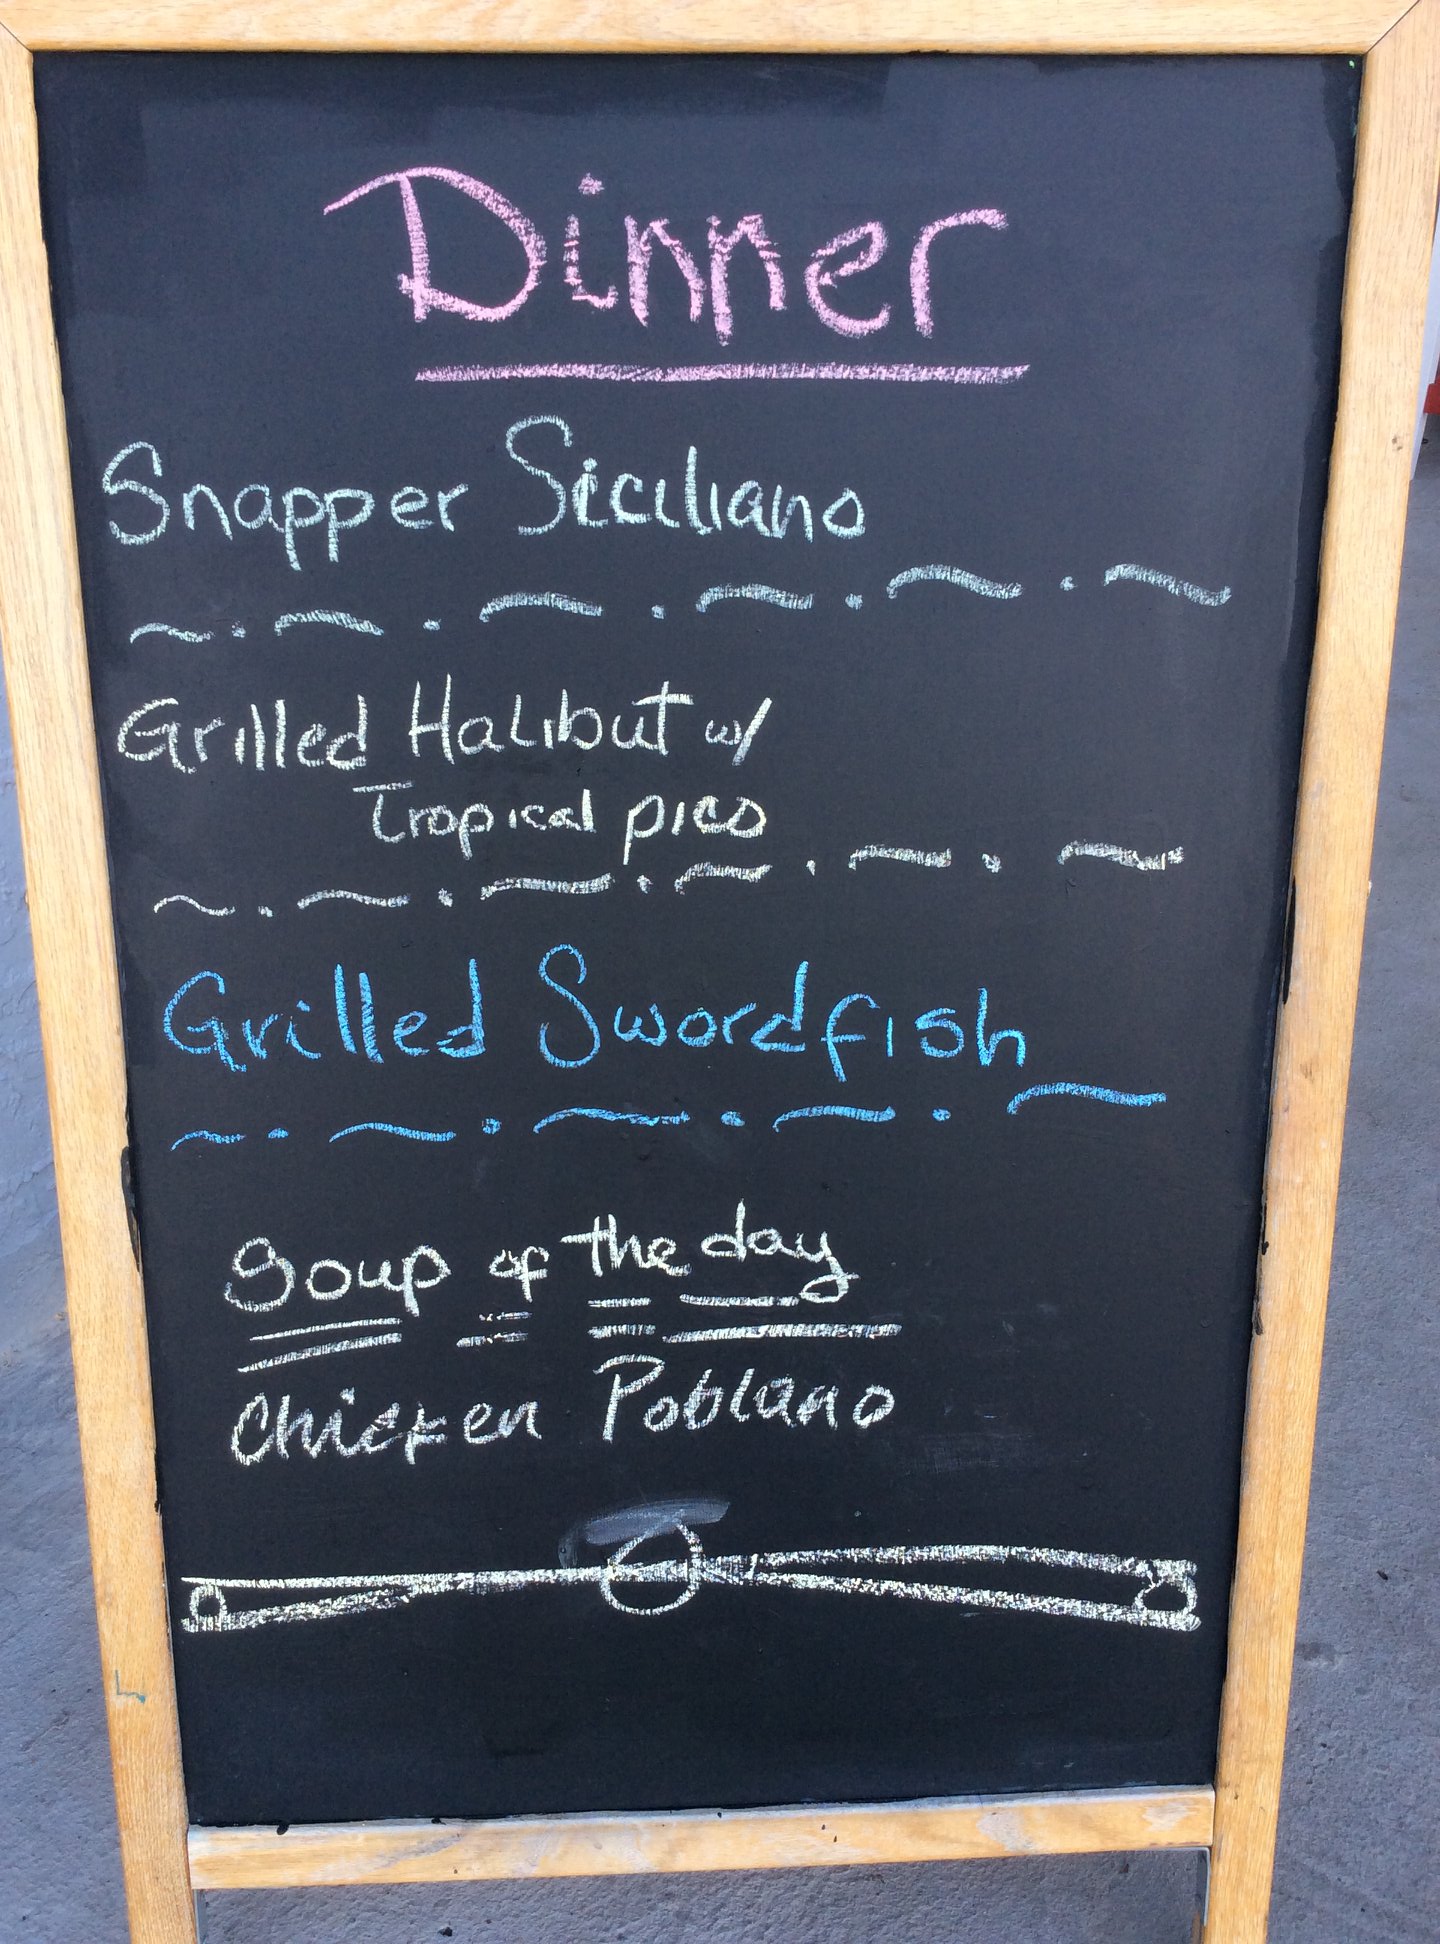 Dinner
Snapper Siciliano
Grilled Halibut w/
Tropical pico
Grilled Swordfish
Soup of the day
Chicken Poblano